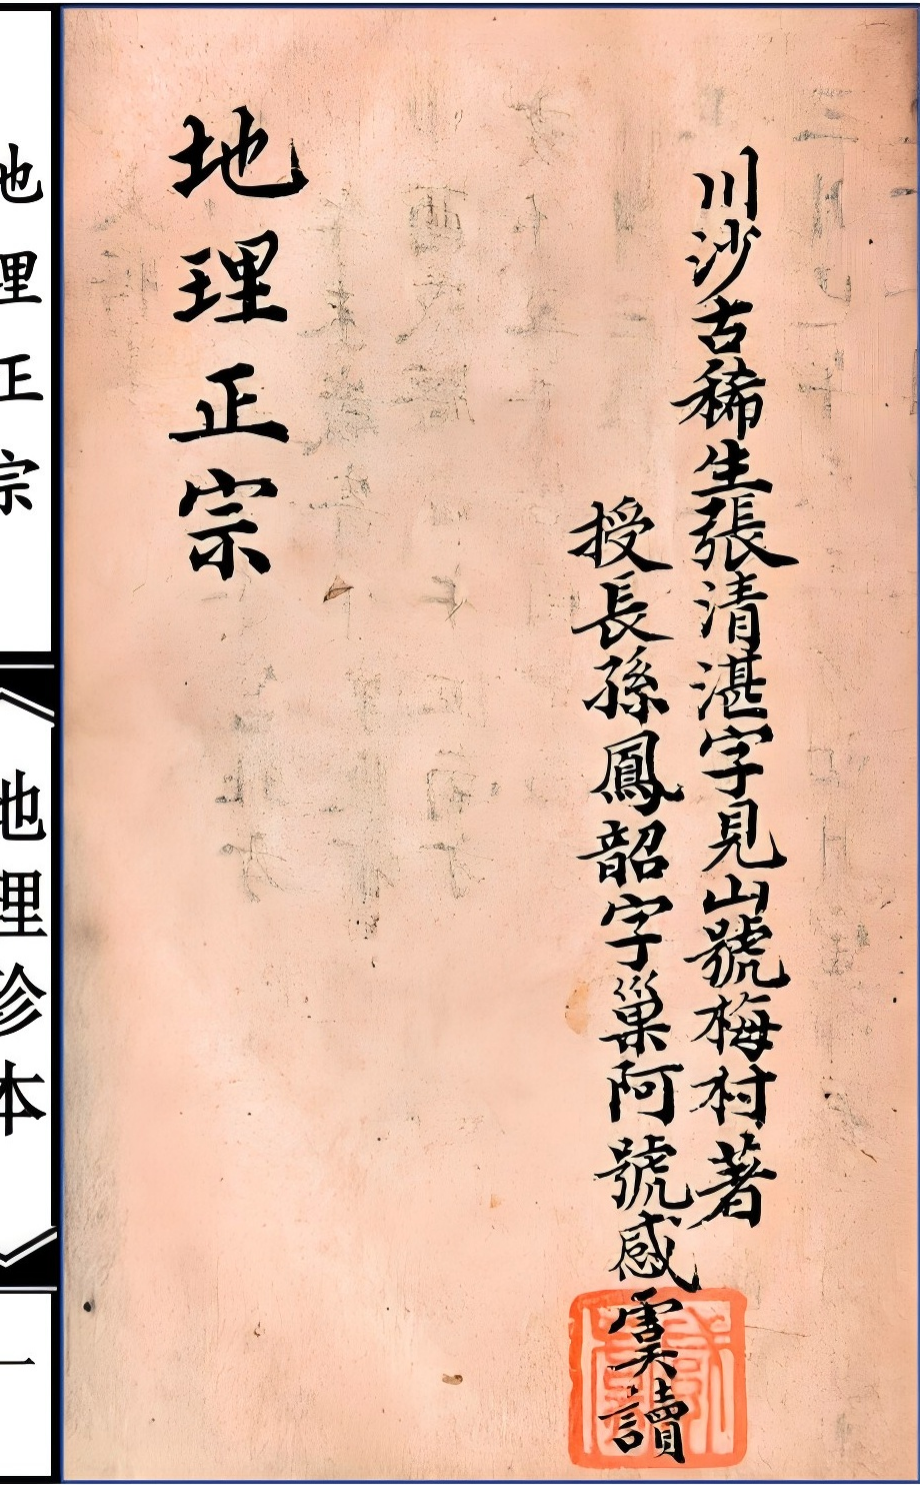 川沙古稀生張清湛字見山號梅村著
授長孫鳳韶字巢阿號感雲讀
地理正宗
地理正宗
《地理珍本》
一